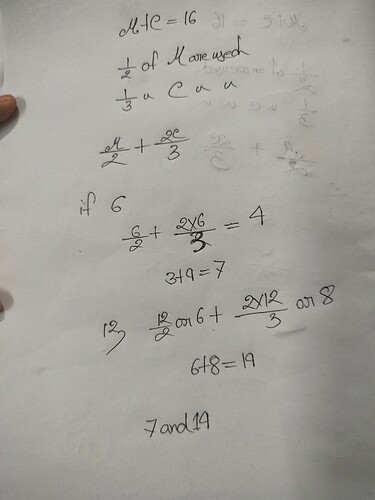 M+C = 16
1/2 of M are used
1/3 " C " "
M/2 + 2C/3
if 6
6/2 + 2x6/3 = 4
3+4 = 7
12, 12/2 or 6 + 2x12/3 or 8
6+8 = 14
7 and 14